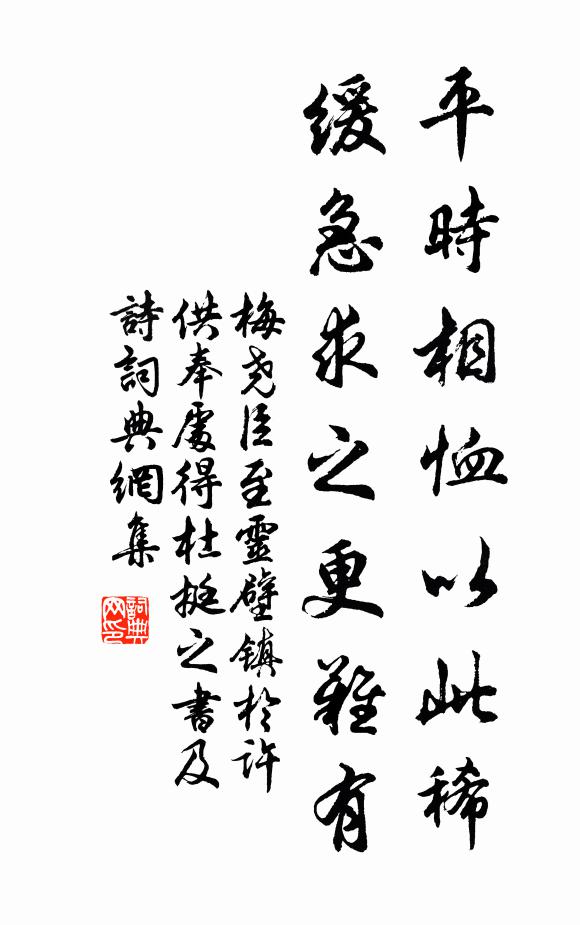 平時相恤以此稀
緩急求之更難有
梅堯臣至靈壁鎮於許
供奉處得杜挺之書及
詩詞典網集
詞典
网印